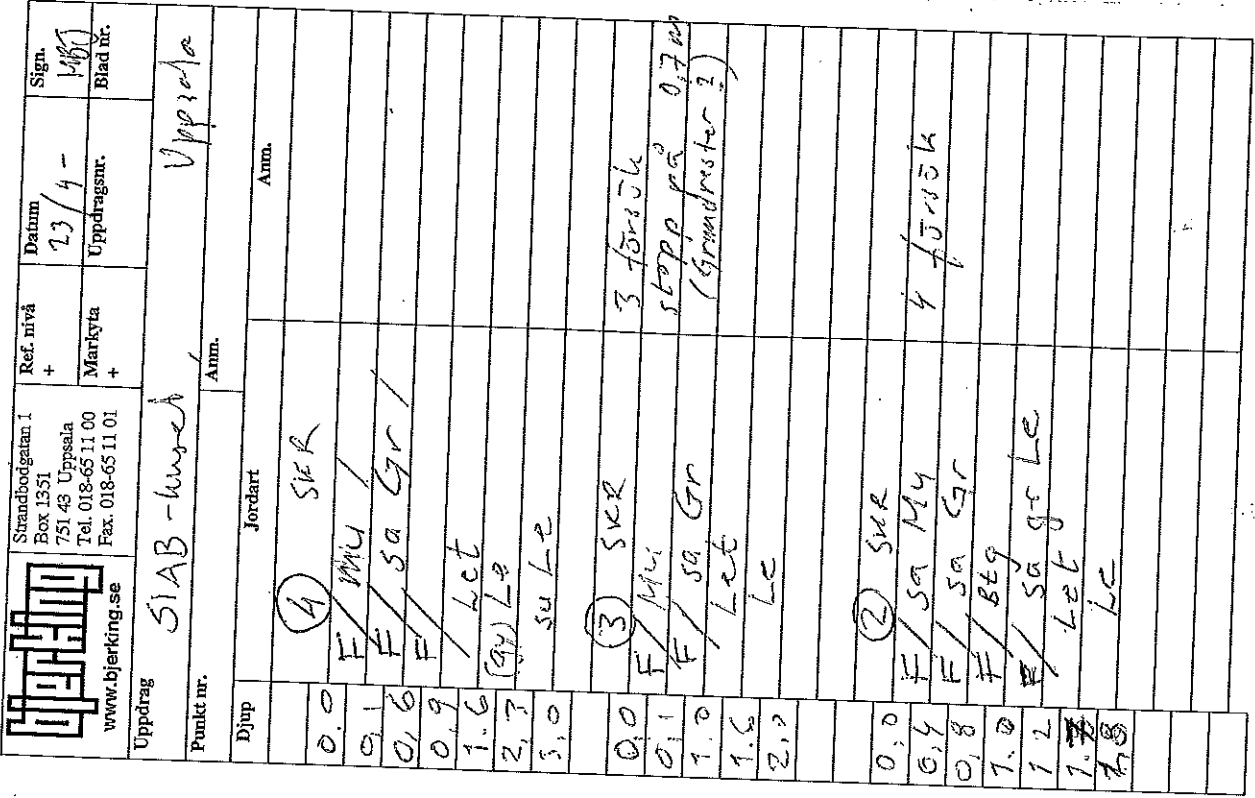 bjerking
www.bjerking.se
Strandbodgatan 1
Box 1351
751 43 Uppsala
Tel. 018-65 11 00
Fax. 018-65 11 01
Ref. nivå
+
Datum
23/4 -
Sign.
MBJ
Markyta
+
Uppdragsnr.
Blad nr.
Uppdrag
SIAB-huset Uppsala
Punkt nr.
Anm.
Djup Jordart Anm.
4 SKR
0.0 F/ Mu /
0,1 F/ sa Gr /
0,6 F/
0,9 / Let
1.6 (gy) Le
2,3 su Le
3,0
3 SKR 3 försök
0,0 F/ Mu stopp på 0,7 m
0,1 F/ sa Gr (Grundrester?)
1.0 / Let
1.6 Le
2,0
2 SKR
0,0 F/ sa My 4 försök
0,4 F/ sa Gr
0,8 F/ Btg
1.0 F/ sa gr Le
1 2 Let
1.7 Le
1,8